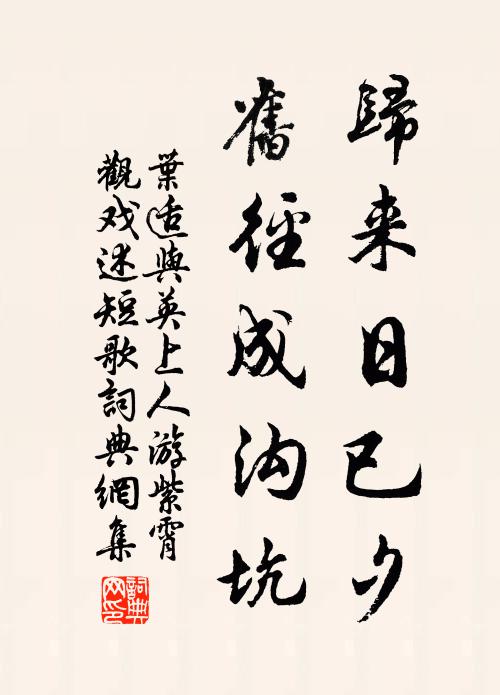 歸来日已夕
舊徑成沟坑
葉适與英上人游紫霄
觀戏述短歌詞典網集